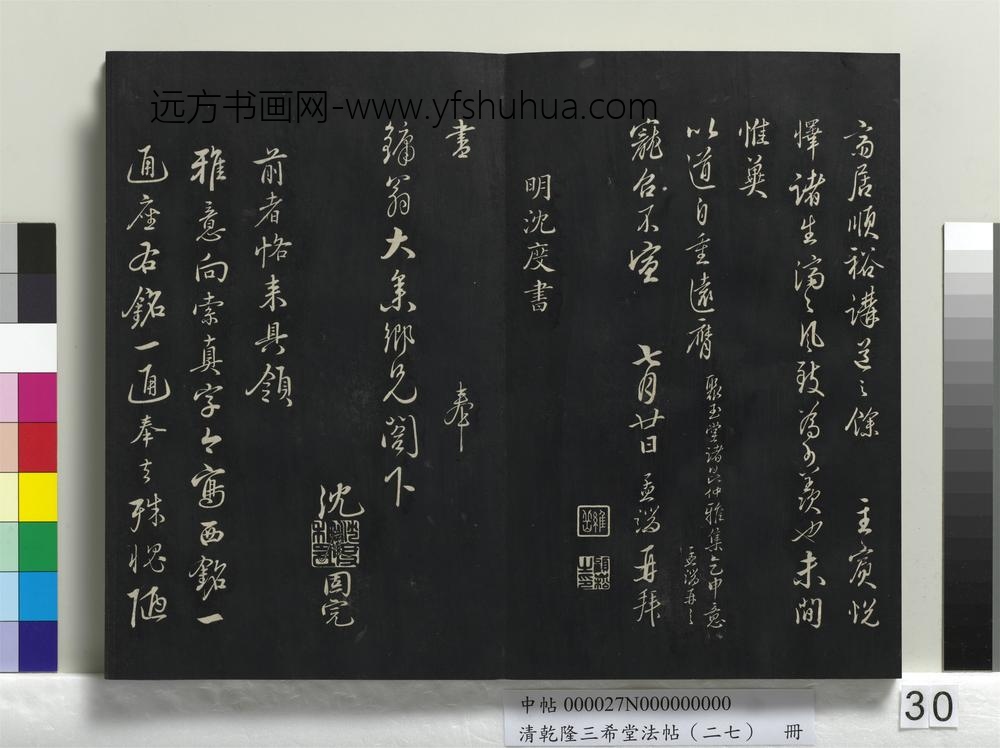 远方书画网-www.yfshuhua.com
高居順裕講道之餘 主賓悅
懌諸生濟々風致為可羨也未間
惟冀
以道自重遠膺
聚玉堂諸昆仲雅集乞申意
孟端再々
寵召不宣 七月廿日孟端再拜
明沈度書
書 奉
鏞翁大契鄉兄閣下
沈 固完
前者恪來具領
雅意向索真字今寫西銘一
通座右銘一通奉去殊愧陋
中帖 000027N000000000
清乾隆三希堂法帖（二七） 冊
30